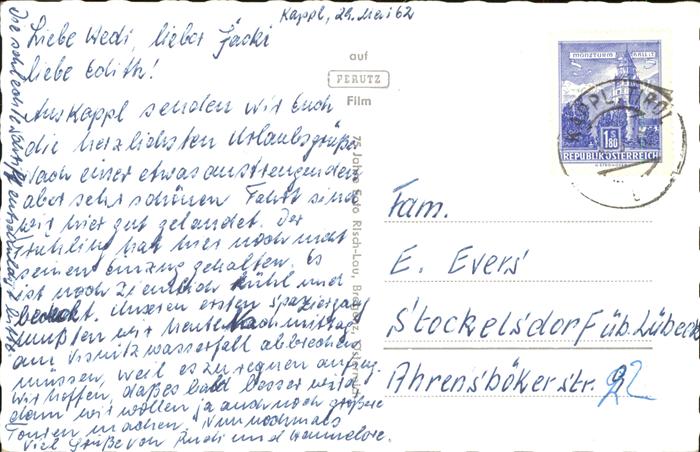 Kappl, 29. Mai 62
Liebe Hedi, lieber Jacki
liebe Edith!
Aus Kappl senden wir Euch
die herzlichsten Urlaubsgrüße
Nach einer etwas anstrengenden
aber sehr schönen Fahrt sind
wir hier gut gelandet. Der
Frühling hat hier noch nicht
seinen Einzug gehalten. Es
ist noch ziemlich kühl und
bedeckt. Unseren ersten Spaziergang
mußten wir heute Nachmittag
am Visnitzwasserfall abbrechen
müssen, weil es zu regnen anfing.
Wir hoffen, daß es bald besser wird
dann wir wollen ja auch noch größere
Touren machen. Nun nochmals
viel Grüße von Rudi und Hannelore.
Die schlechte Schrift
auf
PERUTZ
Film
75 Jahre Foto Risch-Lau, Bregenz, Österreich
MÜNZTURM HALL i.T.
S 1.80
REPUBLIK ÖSTERREICH
KAPPL, TIROL
Fam.
E. Evers
Stockelsdorf üb. Lübeck
Ahrensbökerstr. 92